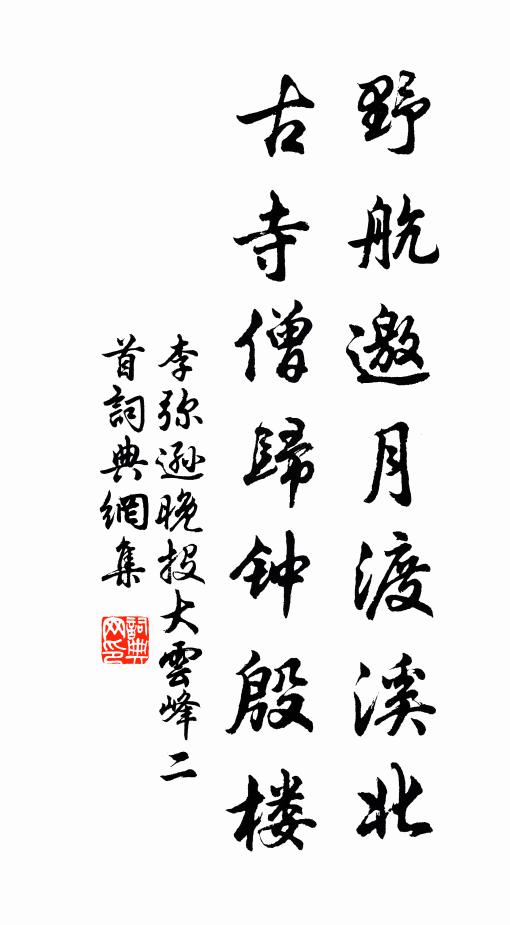 野航邀月渡溪北
古寺僧歸钟殷楼
李弥遜晚投大雲峰二
首詞典網集
詞典
网印